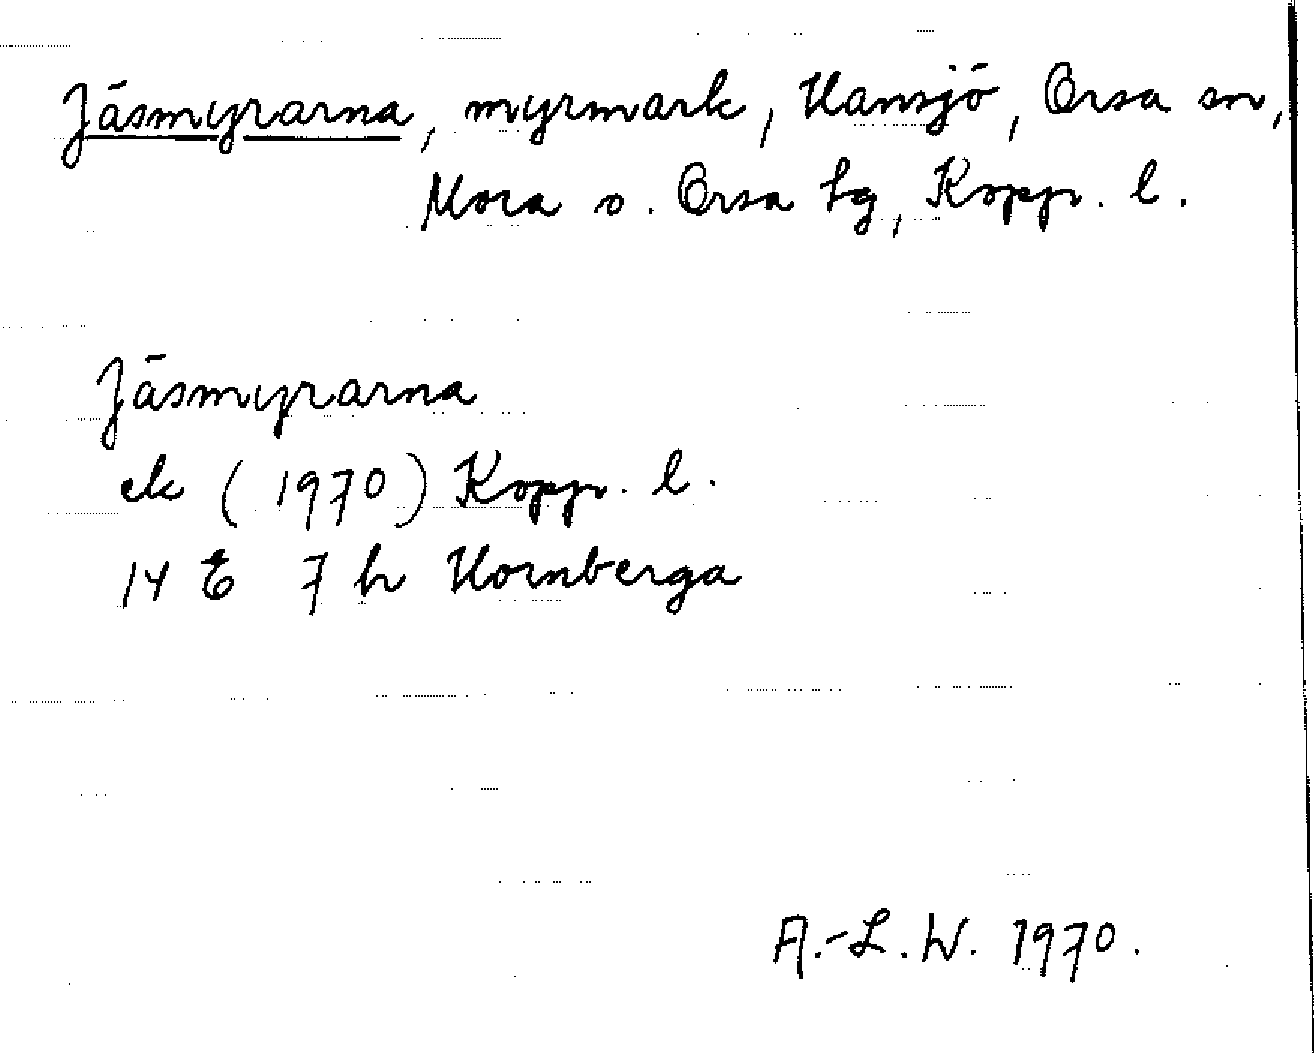 Jäsmyrarna, myrmark, Hansjö, Orsa sn,
Mora o. Orsa tg, Kopp. l.
Jäsmyrarna
ek (1970) Kopp. l.
14 E 7 h Hornberga
A.-L. W. 1970.